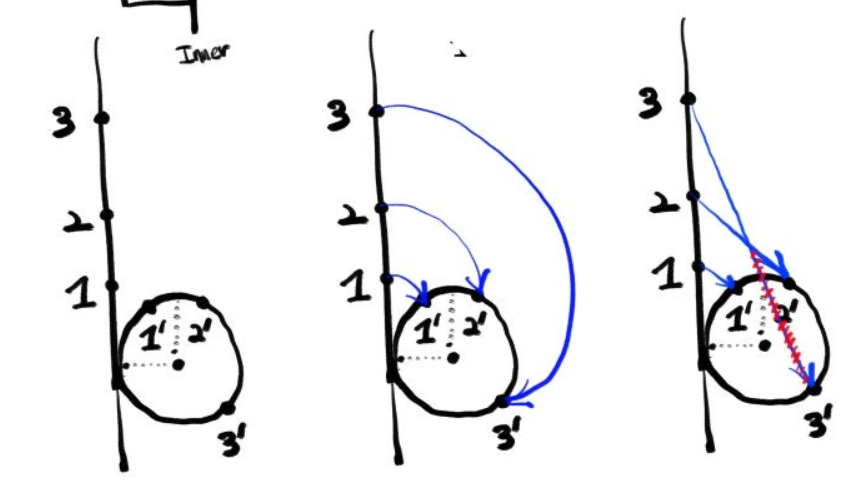 Inner
3
2
1
1'
2'
3'
3
2
1
1'
2'
3'
3
2
1
1'
2'
3'